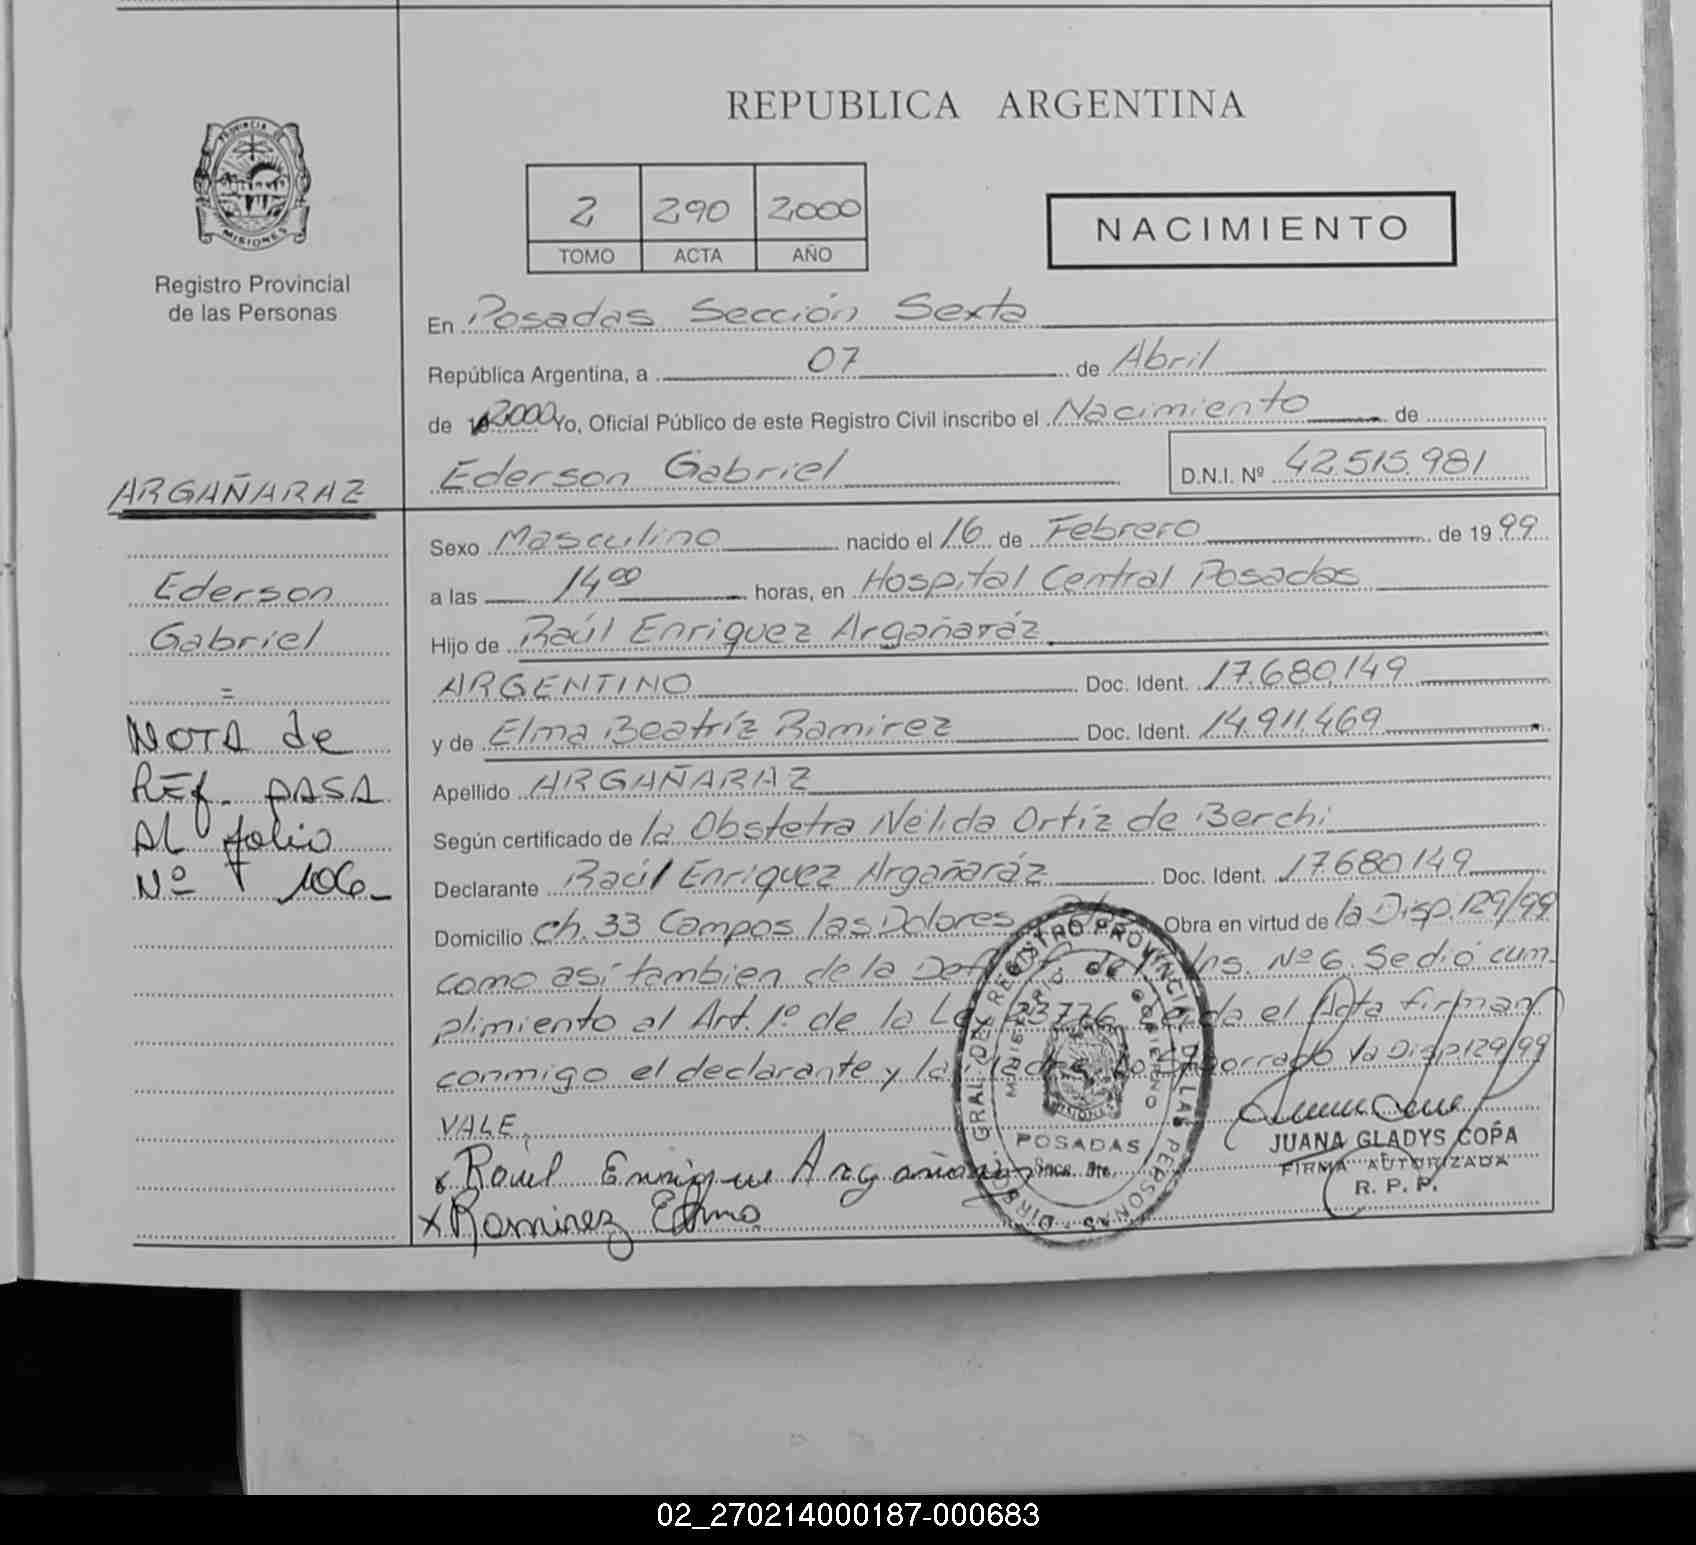 REPUBLICA ARGENTINA
PROVINCIA DE
MISIONES
Registro Provincial
de las Personas
2 290 2000
TOMO ACTA AÑO
NACIMIENTO
En Posadas Sección Sexta
República Argentina, a 07 de Abril
de 2000 Yo, Oficial Público de este Registro Civil inscribo el Nacimiento de
Ederson Gabriel D.N.I. Nº 42.515.981
ARGAÑARAZ
Ederson
Gabriel
=
NOTA de
REf. PASA
AL folio
Nº 106-
Sexo Masculino nacido el 16 de Febrero de 1999
a las 14 00 horas, en Hospital Central Posadas
Hijo de Raúl Enriquez Argañaráz
ARGENTINO Doc. Ident. 17.680.149
y de Elma Beatríz Ramirez Doc. Ident. 14.911.469
Apellido ARGAÑARAZ
Según certificado de la Obstetra Nélida Ortíz de Berchi
Declarante Raúl Enriquez Argañaráz Doc. Ident. 17.680.149
Domicilio Ch. 33 Campos las Dolores Obra en virtud de la Disp. 129/99
como así tambien de la Nº 6. Se dió cum-
plimiento al Art. 1º de la Ley 23776 el Acta firman
conmigo el declarante y la Lo Sborrado la Disp 129/99
VALE
x Raúl Enrique Argañaraz
x Ramirez Elma
DIREC. GRAL. DEL REGISTRO PROVINCIAL DE LAS PERSONAS
MINISTERIO DE GOBIERNO
MISIONES
POSADAS
JUANA GLADYS COPA
FIRMA AUTORIZADA
R. P. P.
02_270214000187-000683